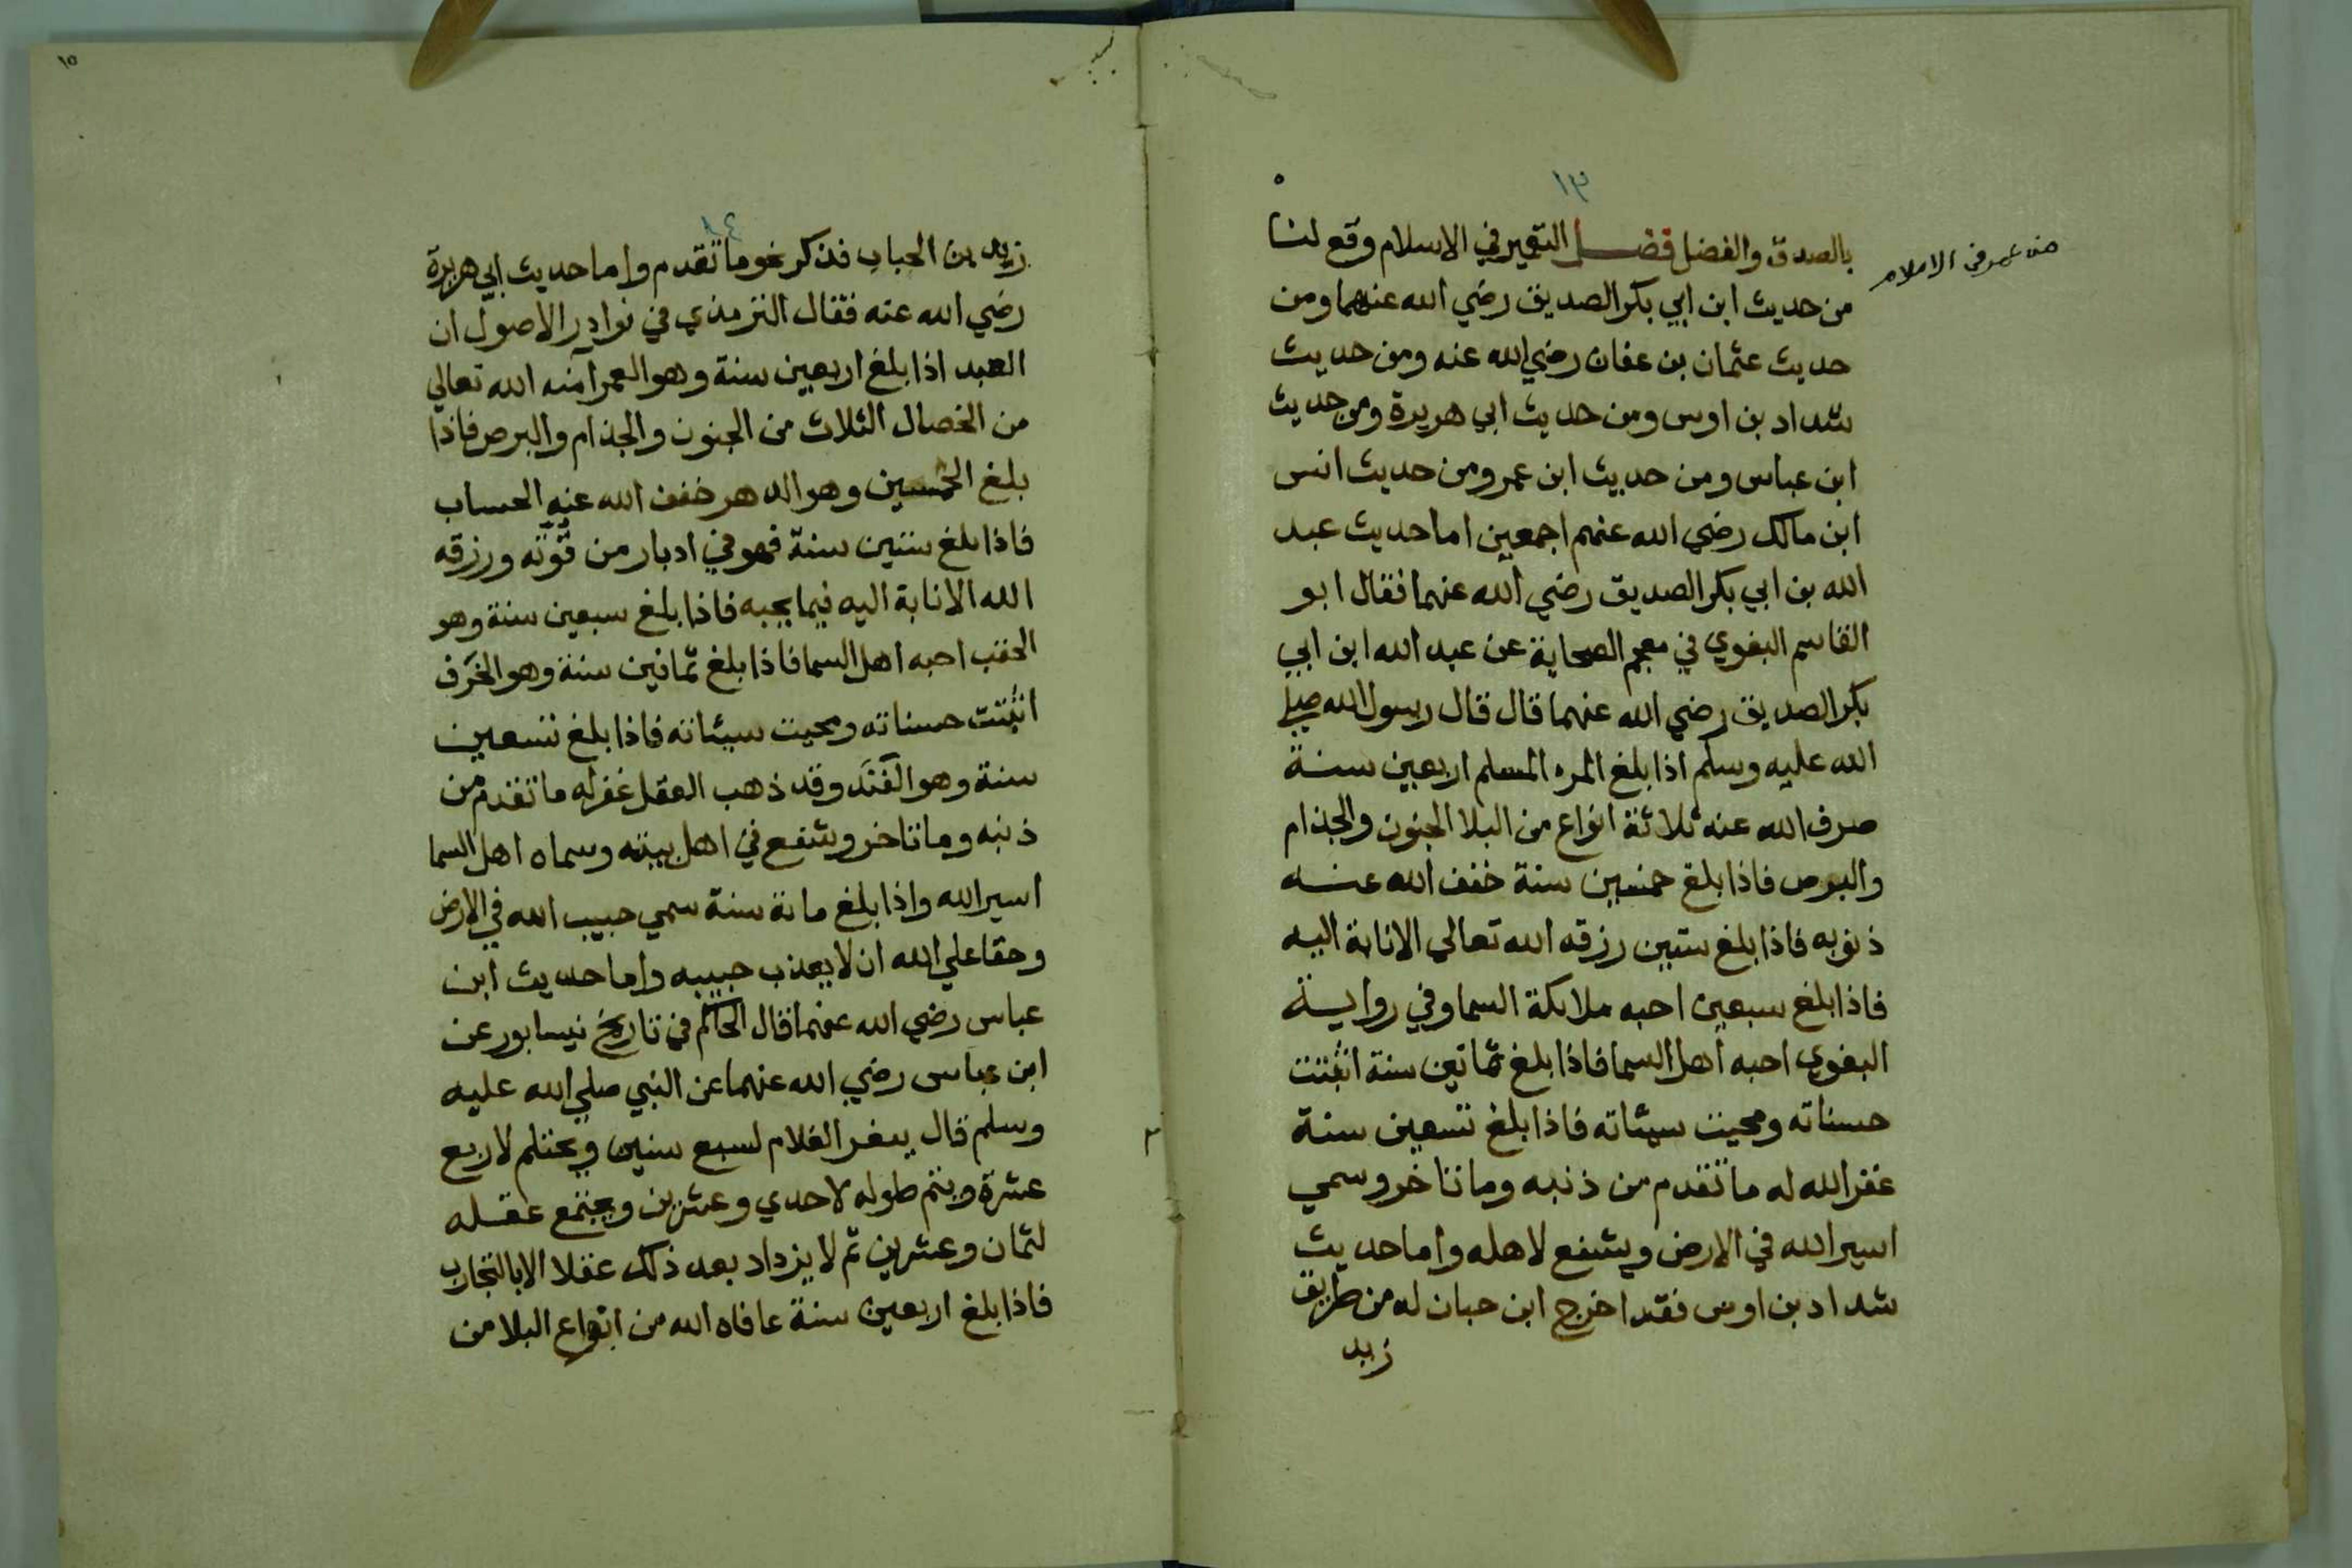 ١٣
بالصدق والفضل فضل التعمير في الاسلام وقع لنا
من عمر في الاسلام
من حديث ابن ابي بكر الصديق رضي الله عنهما ومن
حديث عثمان بن عفان رضي الله عنه ومن حديث
شداد بن اوس ومن حديث ابي هريرة ومن حديث
ابن عباس ومن حديث ابن عمر ومن حديث انس
ابن مالك رضي الله عنهم اجمعين اما حديث عبد
الله بن ابي بكر الصديق رضي الله عنهما فقال ابو
القاسم البغوي في معجم الصحابة عن عبد الله ابن ابي
بكر الصديق رضي الله عنهما قال قال رسول الله صلي
الله عليه وسلم اذا بلغ المرء المسلم اربعين سنة
صرف الله عنه ثلاثة انواع من البلا الجنون والجذام
والبرص فاذا بلغ خمسين سنة خفف الله عنه
ذنوبه فاذا بلغ ستين رزقه الله تعالي الانابة اليه
فاذا بلغ سبعين احبه ملائكة السما وفي رواية
البغوي احبه اهل السما فاذا بلغ ثمانين سنة اثبتت
حسناته ومحيت سيئاته فاذا بلغ تسعين سنة
غفر الله له ما تقدم من ذنبه وما تاخر وسمي
اسير الله في الارض ويشفع لاهله واما حديث
شداد بن اوس فقد اخرج ابن حبان له من طريق
زيد
١٥
١٤
زيد بن الحباب فذكر نحو ما تقدم واما حديث ابي هريرة
رضي الله عنه فقال الترمذي في نوادر الاصول ان
العبد اذا بلغ اربعين سنة وهو العمر آمنه الله تعالي
من الخصال الثلاث من الجنون والجذام والبرص فاذا
بلغ الخمسين وهو الدهر خفف الله عنه الحساب
فاذا بلغ ستين سنة فهو في ادبار من قوته ورزقه
الله الانابة اليه فيما يحبه فاذا بلغ سبعين سنة وهو
الحقب احبه اهل السما فاذا بلغ ثمانين سنة وهو الخرف
اثبتت حسناته ومحيت سيئاته فاذا بلغ تسعين
سنة وهو الفَنَد وقد ذهب العقل غفر له ما تقدم من
ذنبه وما تاخر وشفع في اهل بيته وسماه اهل السما
اسير الله واذا بلغ مائة سنة سمي حبيب الله في الارض
وحقا علي الله ان لا يعذب حبيبه واما حديث ابن
عباس رضي الله عنهما قال الحاكم في تاريخ نيسابور عن
ابن عباس رضي الله عنهما عن النبي صلي الله عليه
وسلم قال يثغر الغلام لسبع سنين ويحتلم لاربع
عشرة ويتم طوله لاحدي وعشرين ويجتمع عقله
لثمان وعشرين ثم لا يزداد بعد ذلك عقلا الا بالتجارب
فاذا بلغ اربعين سنة عافاه الله من انواع البلا من